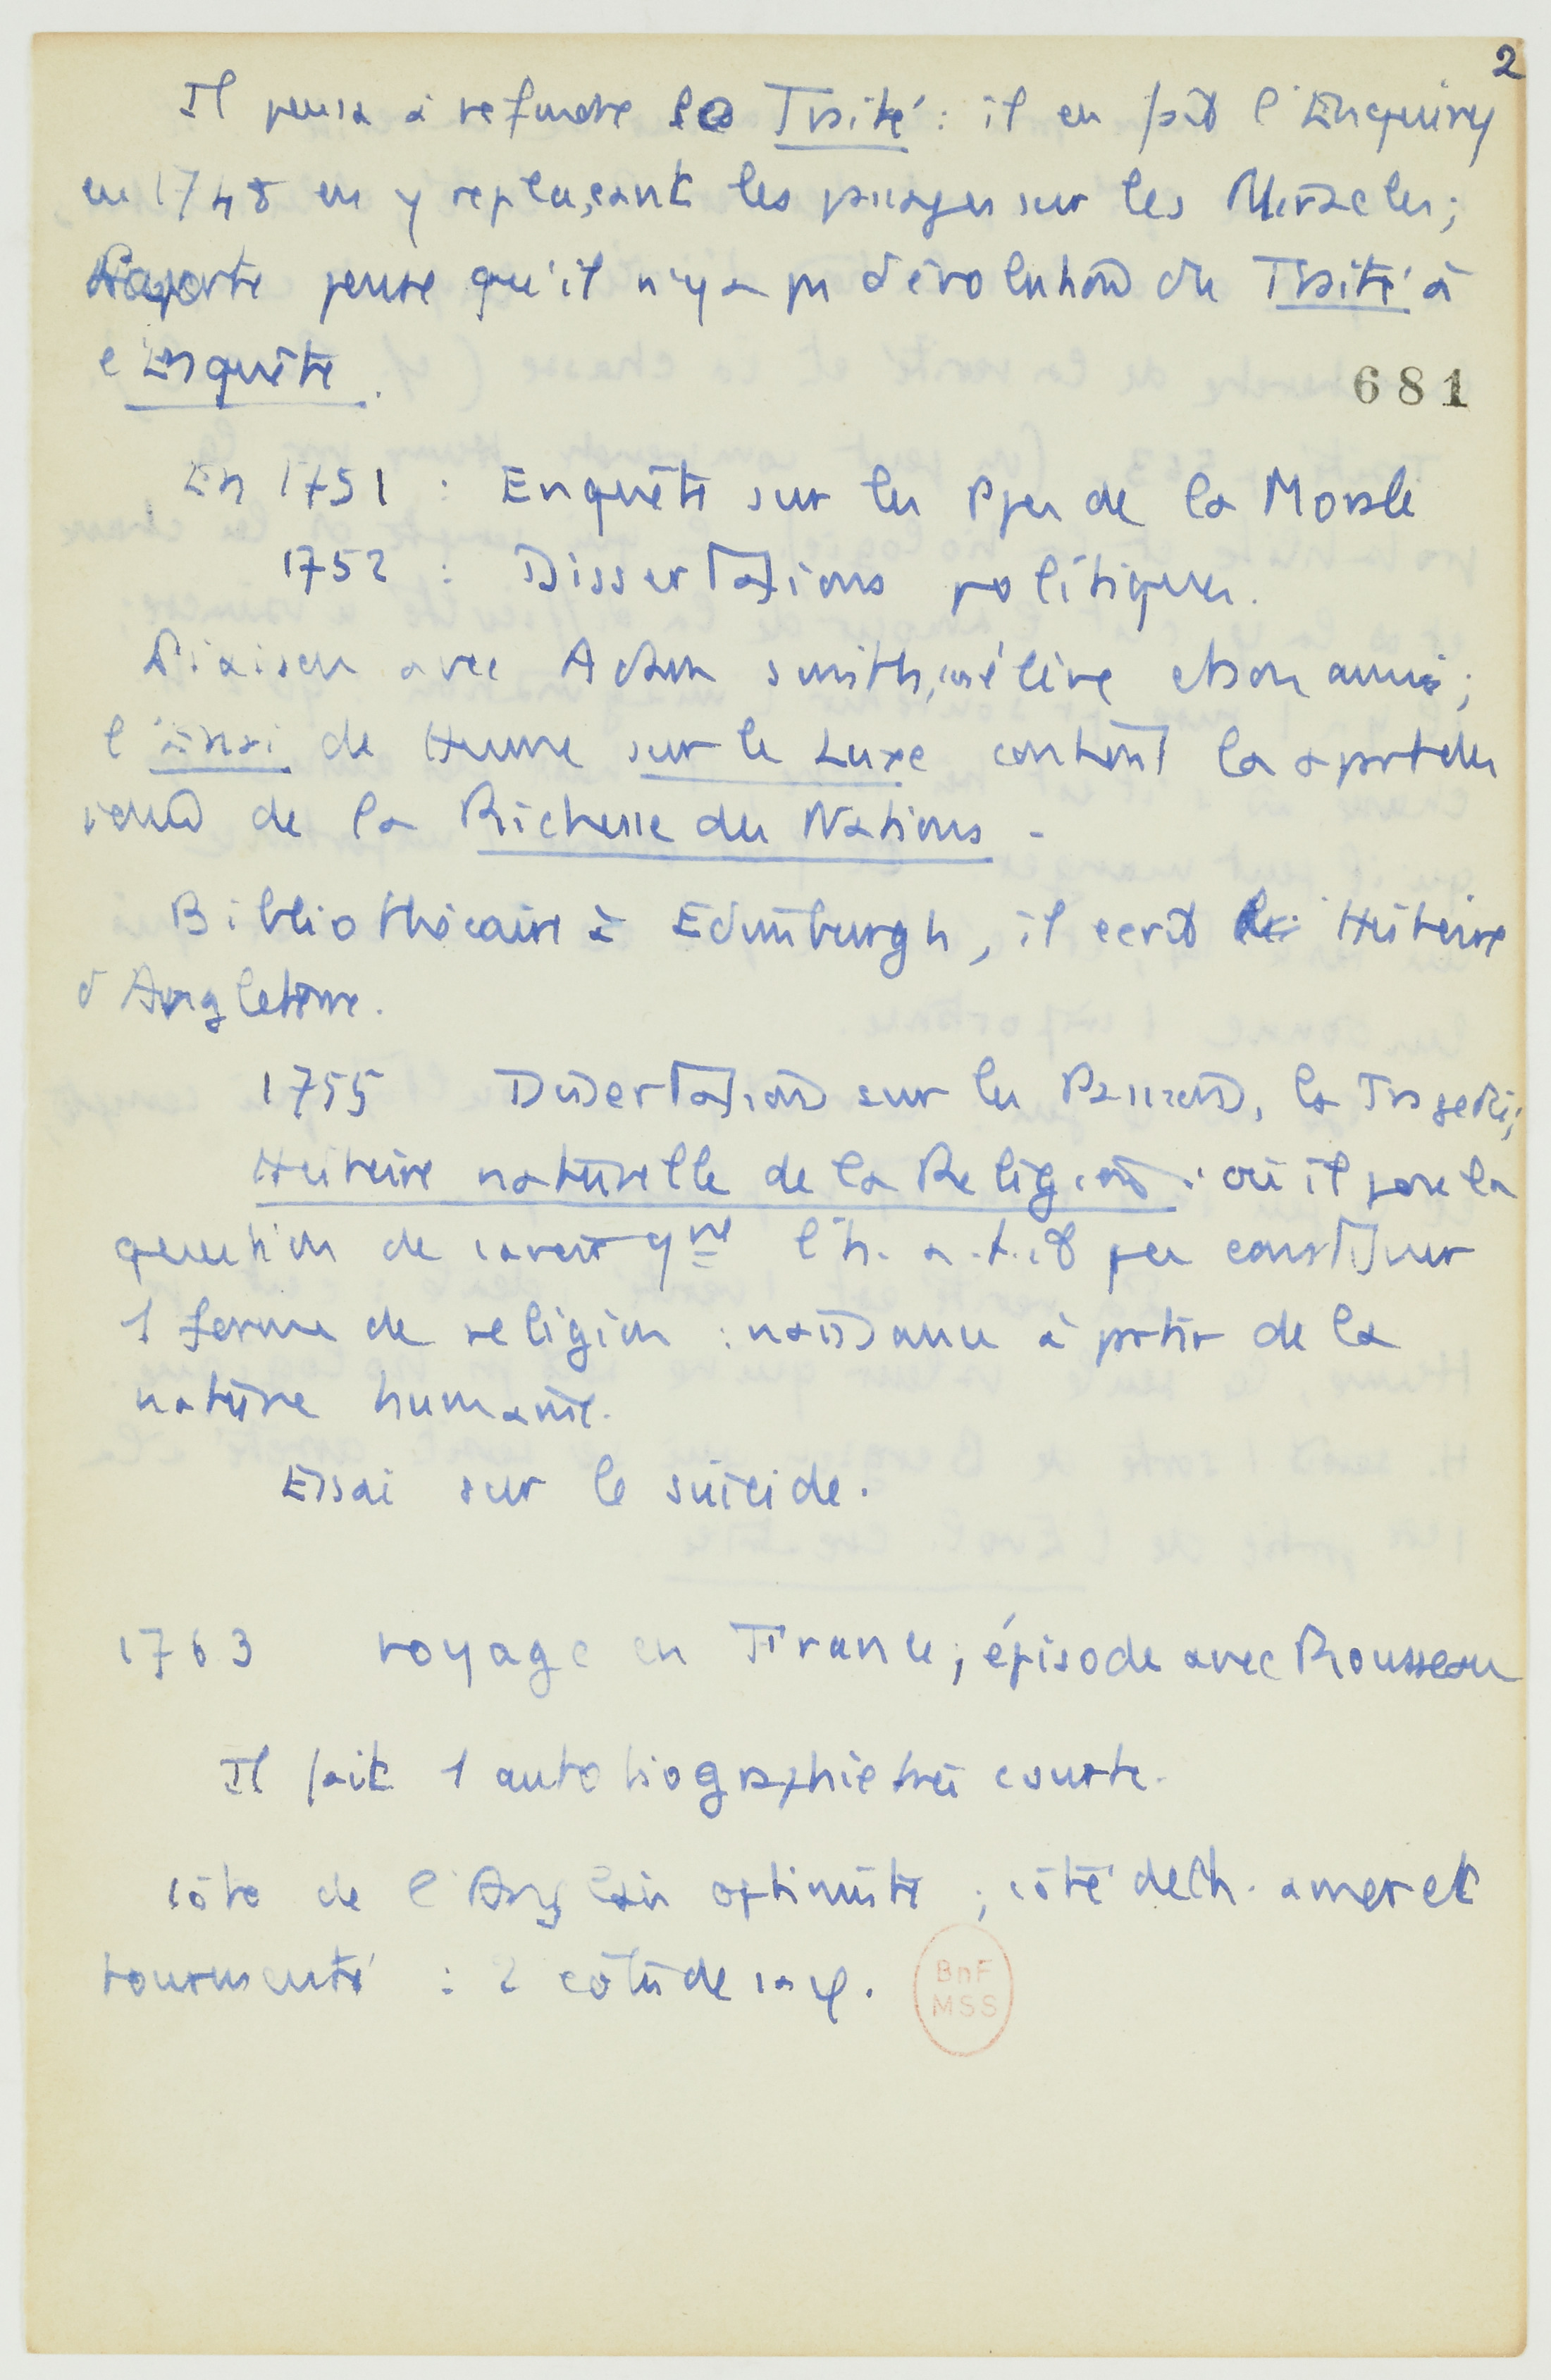 2
Il pensa à refondre le Traité : il en fait l'Enquiry
en 1748 en y replaçant les passages sur les Miracles ;
Laporte pense qu'il n'y a pas d'évolution du Traité à
l'Enquête.
681
En 1751 : Enquête sur les Ppes de la Morale
1752 : Dissertations politiques.
Liaison avec Adam Smith, son élève et son ami ;
l'Essai de Hume sur le Luxe contient la
de la Richesse des Nations -
Bibliothécaire à Edimburgh, il écrit Histoire
d'Angleterre.
1755 Dissertation sur les Passions, la Tragédie ;
Histoire naturelle de la Religion : où il pose la
question de savoir l'h. a-t-il pu constituer
1 forme de religion : naissance à partir de la
nature humaine.
Essai sur le suicide.
1763 voyage en France ; épisode avec Rousseau
Il fait 1 autobiographie très courte.
côté de l'Anglais optimiste ; côté de l'h. amer et
tourmenté : 2 côtés de sa φ.
BnF
MSS